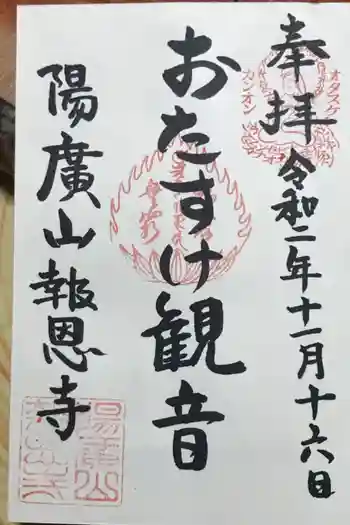 奉拝 令和二年十一月十六日
オタスケ
カンオン
おたすけ観音
陽廣山報恩寺